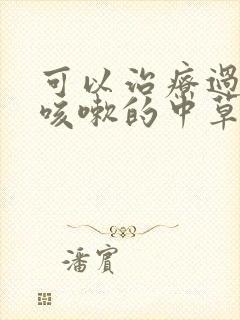 可以治療過
咳嗽的中草
潘賓